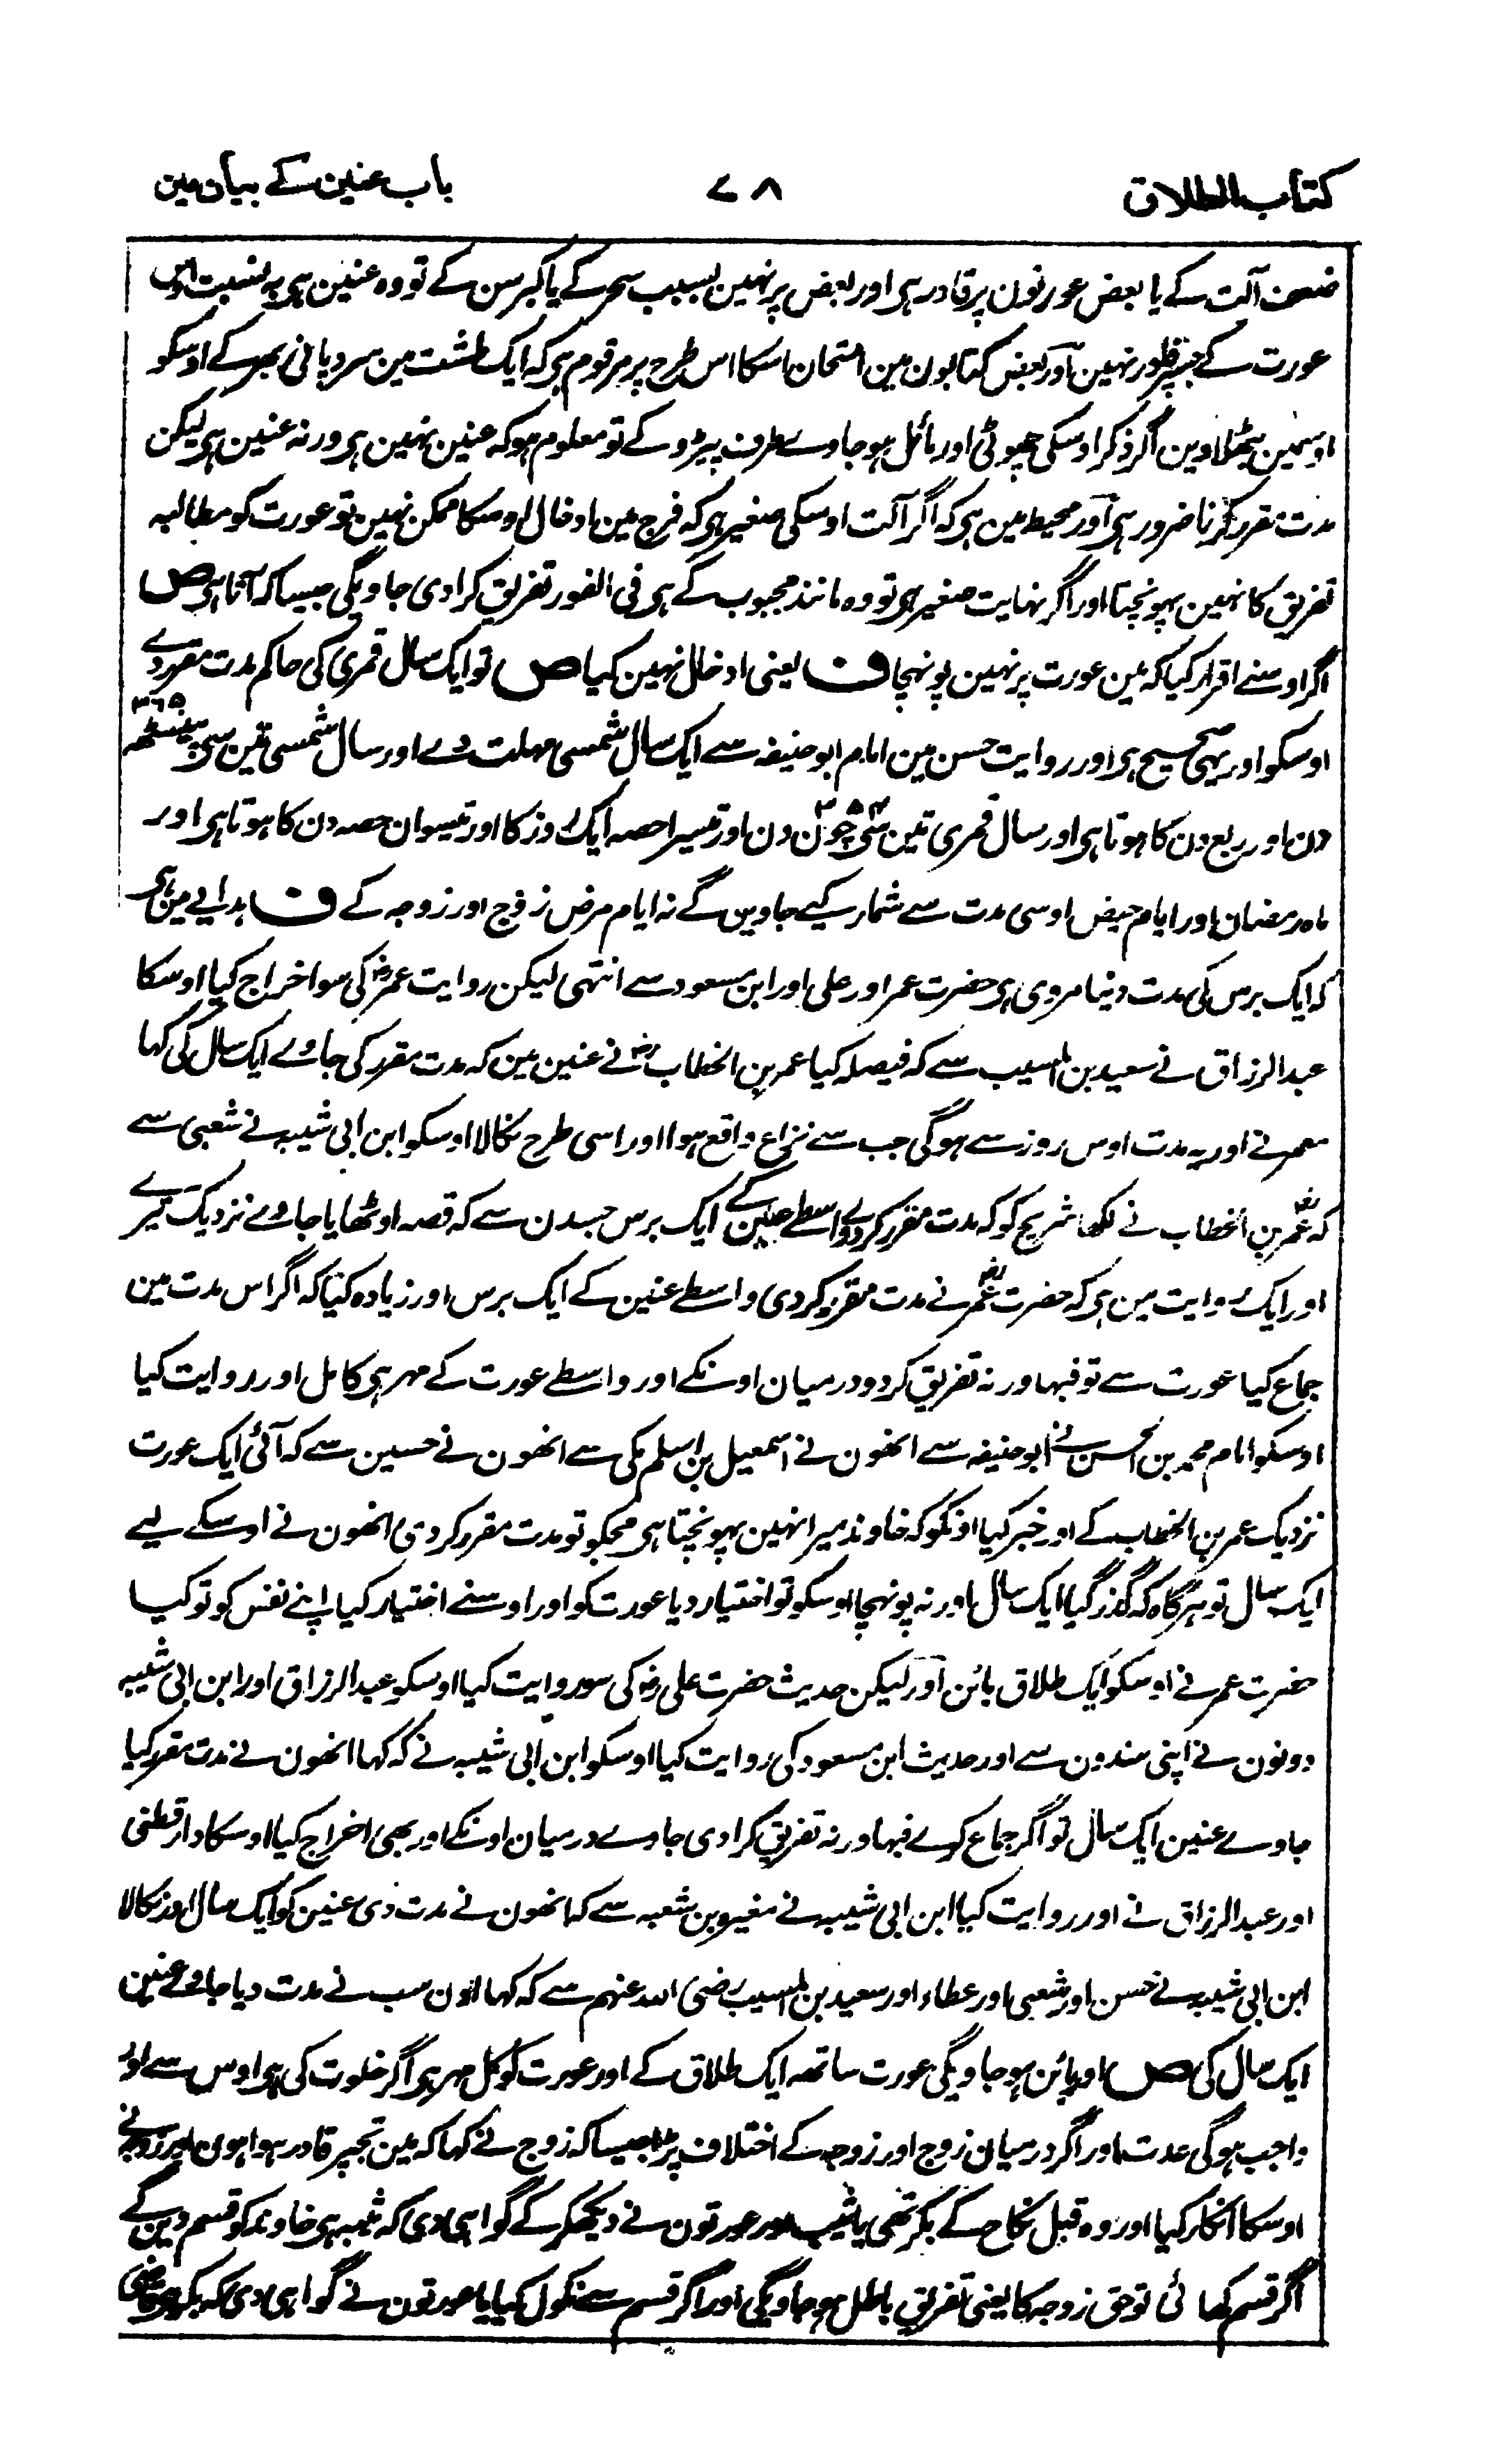 کتاب الطلاق ۷۸ باب عنین کے بیان مین
ضعف آلت کے یا بعض عورتون پر قادر ہی اور بعض پر نہین بسبب سحر کے یا کبر سن کے تو وہ عنین ہی بہ نسبت اوس
عورت کے جسپر قادر نہین اور بعض کتابون مین امتحان اسکا اس طرح پر مرقوم ہی کہ ایک طشت مین سرد پانی بھر کے اوسکو
اوسمین بٹھلاوین اگر ذکر اوسکی چھوٹی اور مائل ہو جاوے طرف پیڑو کے تو معلوم ہو کہ عنین نہین ہی ورنہ عنین ہی لیکن
مدت مقرر کرنا ضرور ہی اور محیط مین ہی کہ اگر آلت اوسکی صغیر ہی کہ فرج مین ادخال اوسکا ممکن نہین تو عورت کو مطالبہ
تفریق کا نہین پہونچتا اور اگر نہایت صغیر ہی تو وہ مانند مجبوب کے ہی فی الفور تفریق کرا دی جاویگی جیسا کہ آتا ہی ص
اگر اوسنے اقرار کیا کہ مین عورت پر نہین پونہچا ف یعنی ادخال نہین کیا ص تو ایک سال قمری کی حاکم مدت مقرر دے
اوسکو اور یہی صحیح ہی اور روایت حسن مین امام ابو حنیفہ سے ایک سال شمسی مہلت دے اور سال شمسی تین سی پینسٹھ ۳۶۵
دن اور ربع دن کا ہوتا ہی اور سال قمری تین سی چون ۳۵۴ دن اور تیسرا حصہ ایک روز کا اور تیسوان حصہ دن کا ہوتا ہی اور
ماہ رمضان اور ایام حیض اوسی مدت سے شمار کیے جاوین گے نہ ایام مرض زوج اور زوجہ کے ف ہدایے مین ہی
کہ ایک برس کی مدت دینا مروی ہی حضرت عمر اور علی اور ابن مسعود سے انتہی لیکن روایت عمرؓ کی سو اخراج کیا اوسکا
عبد الرزاق نے سعید بن المسیب سے کہ فیصلہ کیا عمر بن الخطابؓ نے عنین مین کہ مدت مقرر کی جاوے ایک سال کی کہا
معمر نے اور یہ مدت اوس روز سے ہوگی جب سے نزاع واقع ہوا اور اسی طرح نکالا اوسکو ابن ابی شیبہ نے شعبی سے
کہ عمرؓ بن الخطاب نے لکھا شریح کو کہ مدت مقرر کر دے واسطے عنین کے ایک برس جسدن سے کہ قصہ اوٹھایا جاوے نزدیک تیرے
اور ایک روایت مین ہی کہ حضرت عمرؓ نے مدت مقرر کر دی واسطے عنین کے ایک برس اور زیادہ کیا کہ اگر اس مدت مین
جماع کیا عورت سے تو فبہا ورنہ تفریق کر دو درمیان اونکے اور واسطے عورت کے مہر ہی کامل اور روایت کیا
اوسکو امام محمد بن الحسن نے ابو حنیفہ سے انھون نے اسمعیل بن اسلم مکی سے انھون نے حسین سے کہ آئی ایک عورت
نزدیک عمر بن الخطاب کے اور خبر کیا اونکو کہ خاوند میرا نہین پہونچتا ہی مجکو تو مدت مقرر کر دی انھون نے اوسکے لیے
ایک سال تو ہرگاہ کہ گذر گیا ایک سال اور نہ پونہچا اوسکو تو اختیار دیا عورت کو اور اوسنے اختیار کیا اپنے نفس کو تو کیا
حضرت عمر نے اوسکو ایک طلاق بائن اور لیکن حدیث حضرت علیؓ کی سو روایت کیا اوسکو عبد الرزاق اور ابن ابی شیبہ
دونون نے اپنی سندون سے اور حدیث ابن مسعود کی روایت کیا اوسکو ابن ابی شیبہ نے کہ کہا انھون نے مدت مقرر کیا
جاوے عنین ایک سال تو اگر جماع کرے فبہا ورنہ تفریق کرا دی جاوے درمیان اونکے اور بھی اخراج کیا اوسکا دارقطنی
اور عبد الرزاق نے اور روایت کیا ابن ابی شیبہ نے مغیرہ بن شعبہ سے کہ انھون نے مدت دی عنین کو ایک سال اور نکالا
ابن ابی شیبہ نے حسن اور شعبی اور عطاء اور سعید بن المسیب رضی اللہ عنہم سے کہ کہا اون سب نے مدت دیا جاوے عنین
ایک سال کی ص اور بائن ہو جاویگی عورت ساتھ ایک طلاق کے اور عورت کو کل مہر ہی اگر خلوت کی ہی اوس سے اور
واجب ہوگی عدت اور اگر درمیان زوج اور زوجہ کے اختلاف پڑا جیسا کہ زوج نے کہا کہ مین تجپر قادر ہوا ہون اور زوجہ نے
اوسکا انکار کیا اور وہ قبل نکاح کے بکر تھی یا ثیب اور عورتون نے دیکھکر کے گواہی دی کہ ثیبہ ہی خاوند کو قسم دین گے
اگر قسم کھائی تو حق زوجہ کا یعنی تفریق باطل ہو جاویگی اور اگر قسم سے نکول کیا یا عورتون نے گواہی دی کہ بکر ہی